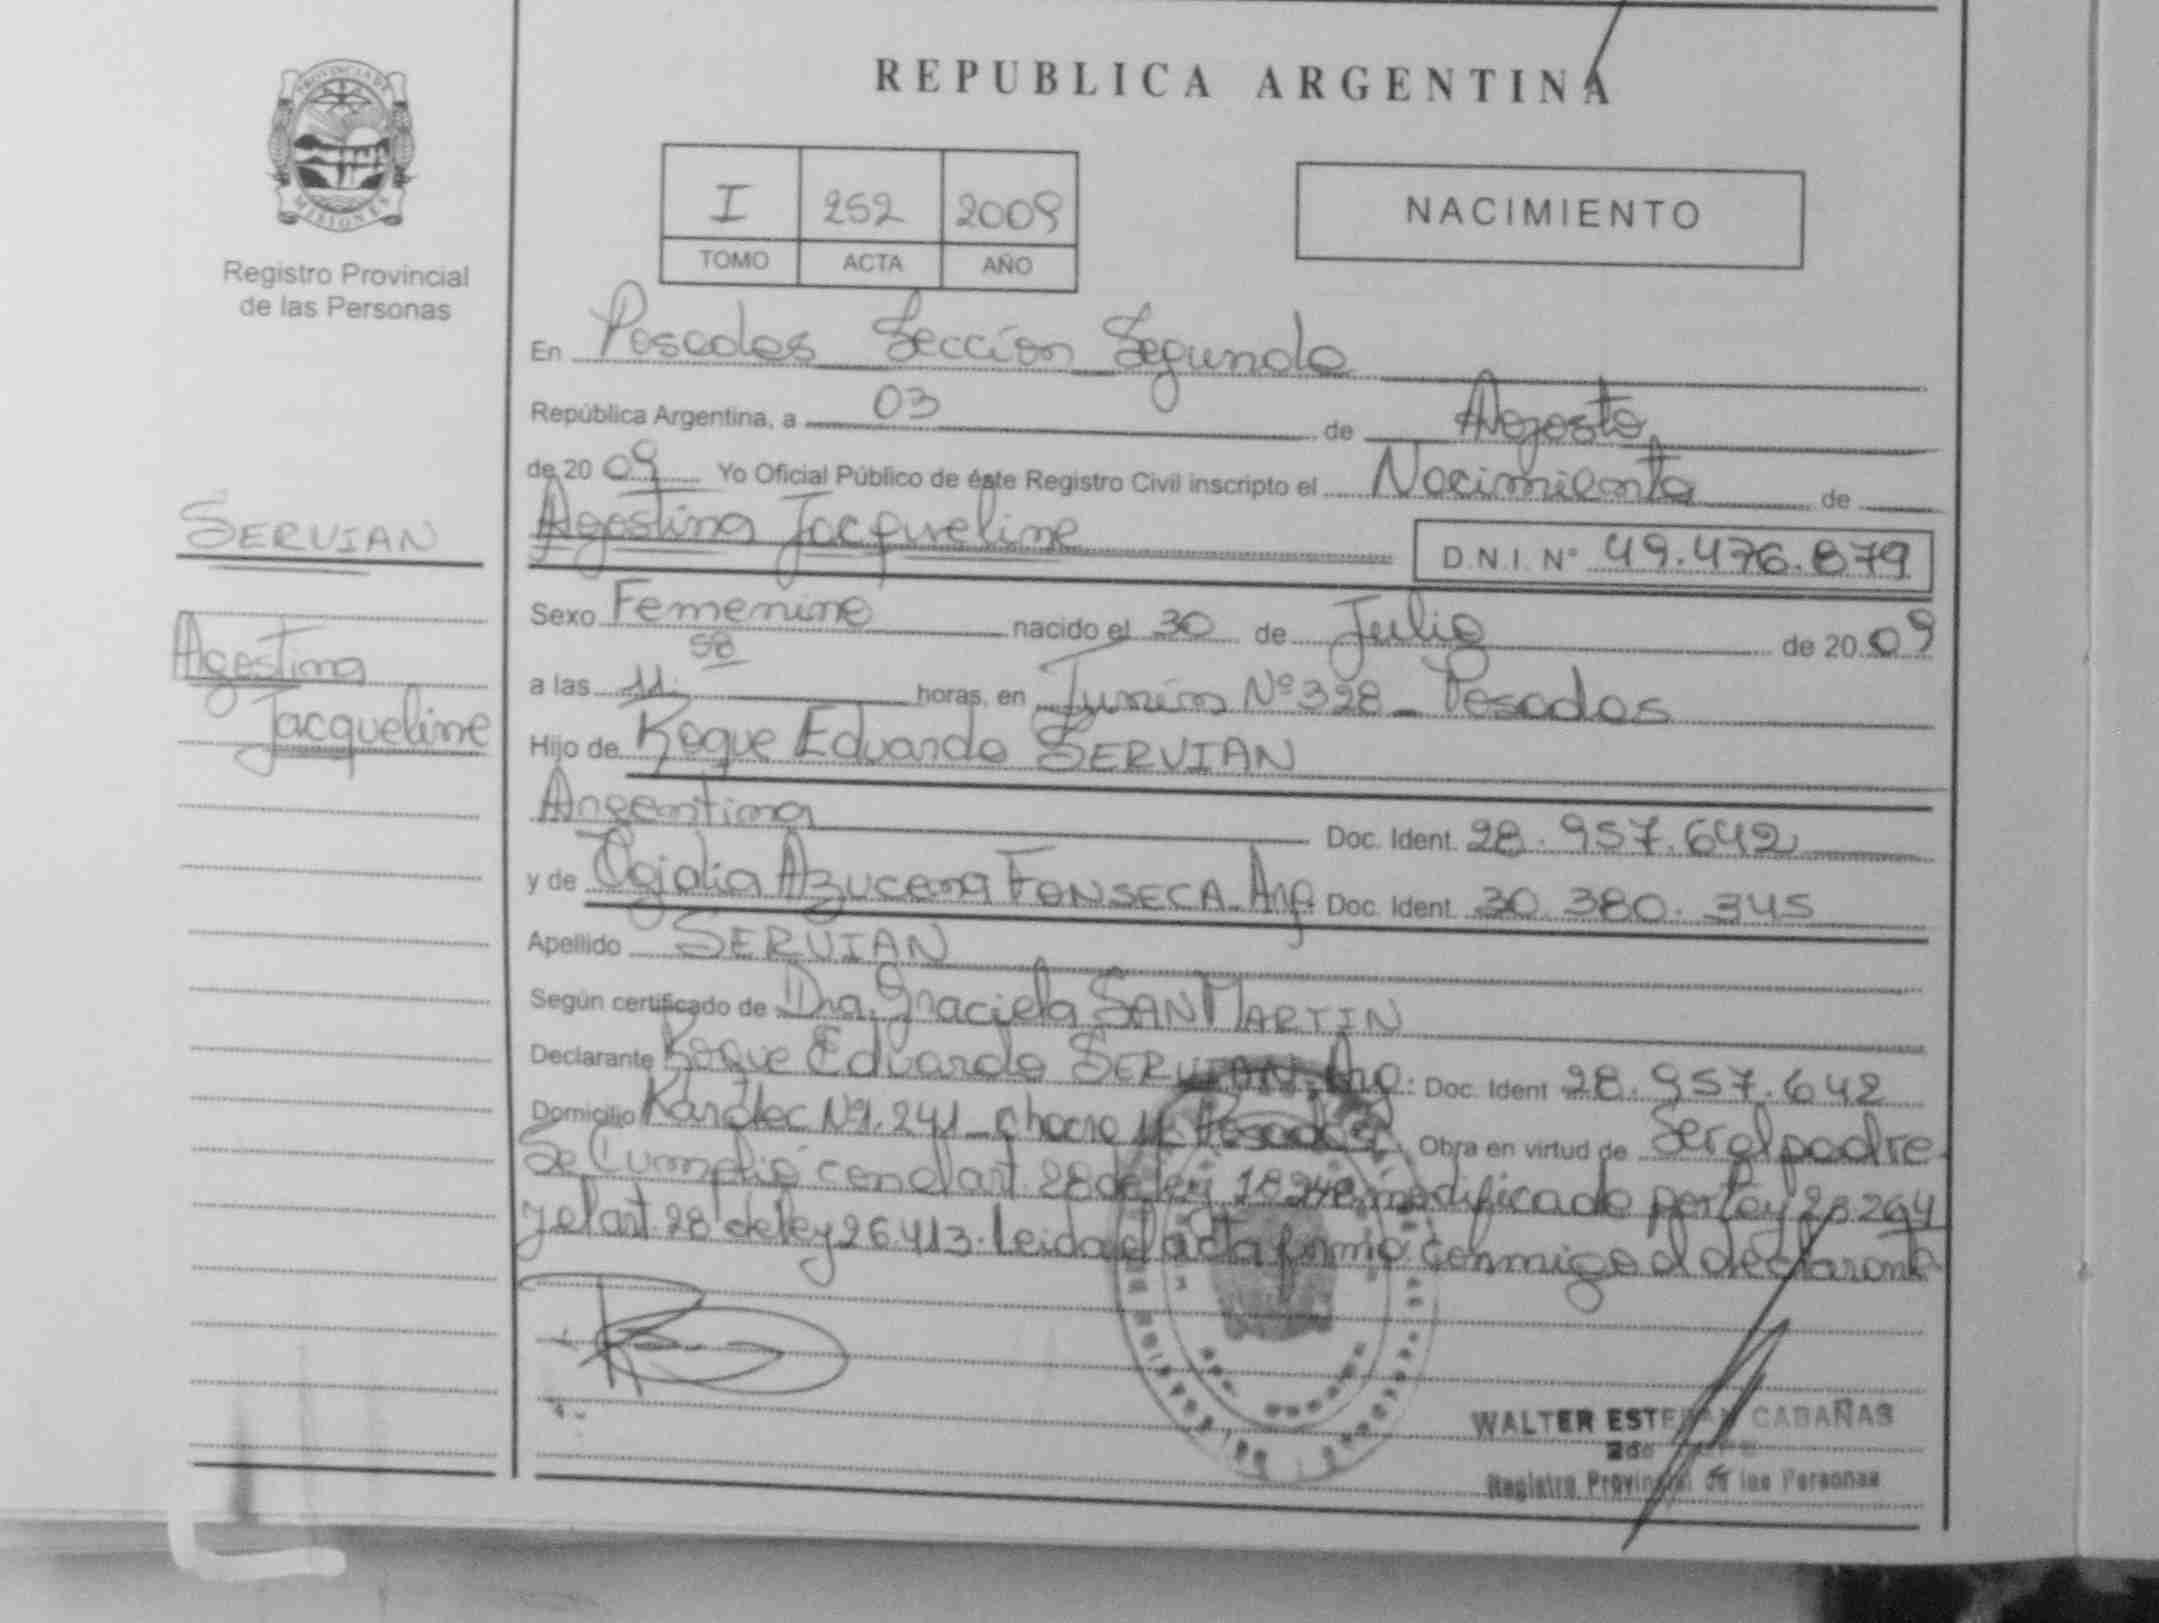 REPUBLICA ARGENTINA
PROVINCIA DE
MISIONES
Registro Provincial
de las Personas
I 252 2009
TOMO ACTA AÑO
NACIMIENTO
En Posadas Sección Segunda
República Argentina, a 03 de Agosto
de 2009 Yo Oficial Público de éste Registro Civil inscripto el Nacimiento de
Agostina Jacqueline D.N.I. Nº 49.476.879
SERVIAN
Agostina
Jacqueline
Sexo Femenino nacido el 30 de Julio de 2009
a las 11:58 horas, en Junín Nº 328 - Posadas
Hijo de Roque Eduardo SERVIAN
Argentina Doc. Ident. 28.957.642
y de Azucena FONSECA - Arg. Doc. Ident. 30.380.345
Apellido SERVIAN
Según certificado de Dra. Graciela SAN MARTIN
Declarante Roque Eduardo SERVIAN. Arg. Doc. Ident 28.957.642
Domicilio Posadas Obra en virtud de Ser el padre.
Se Cumplió con el art. 28 de ley modificado por Ley
y el art. 28 de ley 26.413. Leida el acta firma conmigo el declarante
WALTER ESTEBAN CABAÑAS
Registro Provincial de las Personas